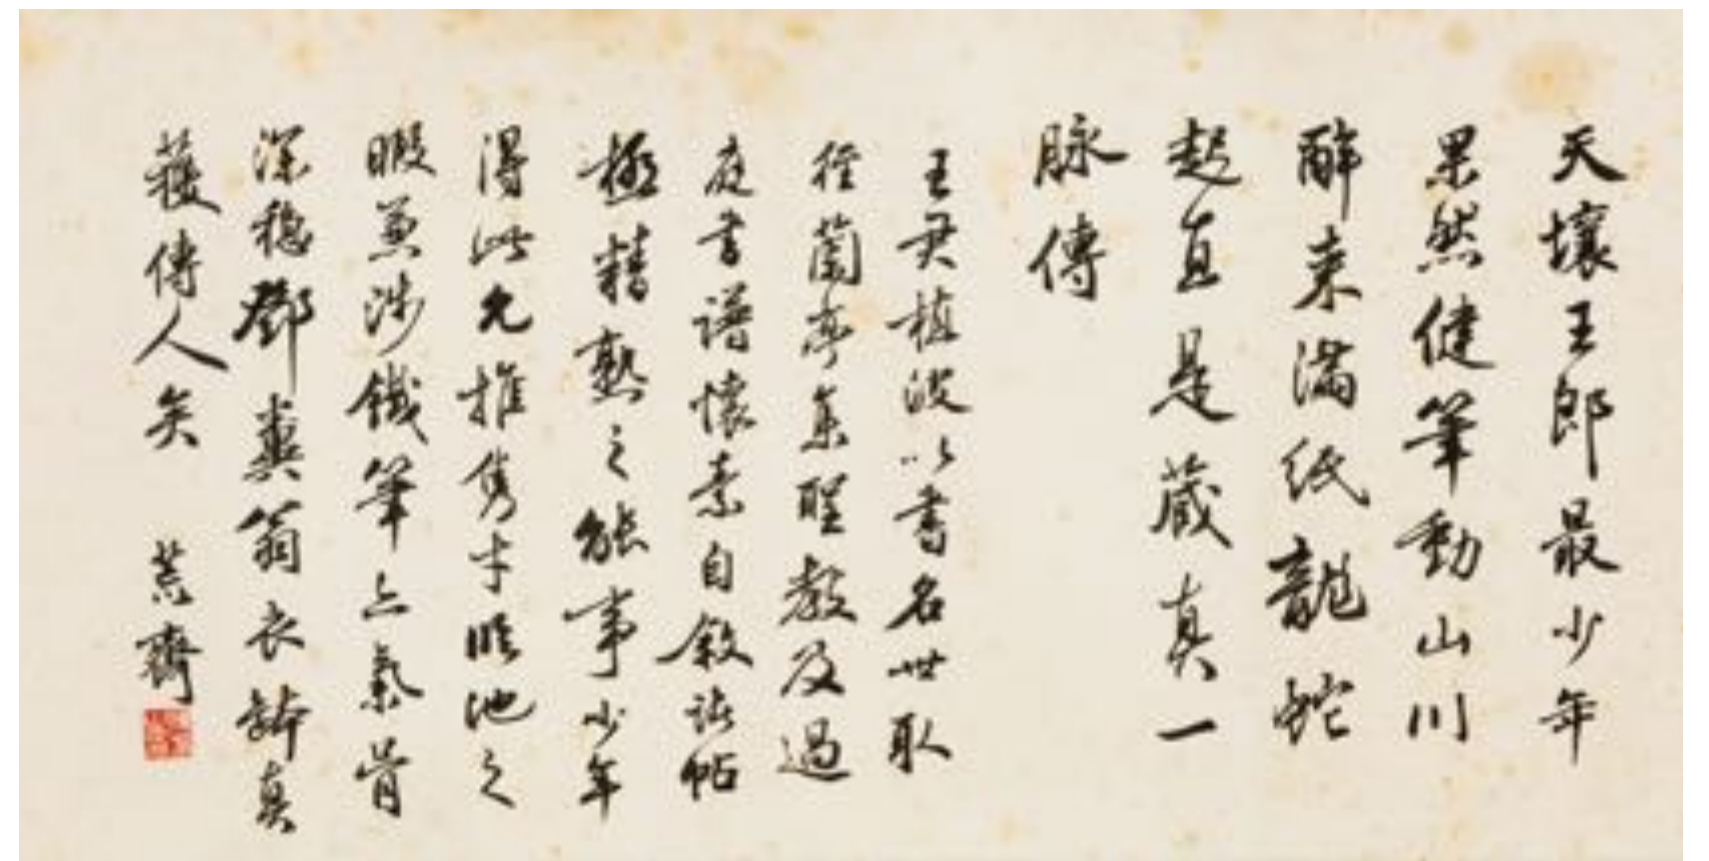 天壤王郎最少年
果然健筆動山川
醉來滿紙龍蛇
起直是藏真一
脉傳
王君植波以書名世取
徑蘭亭集聖教及過
庭書譜懷素自敘諸帖
極精熟之能事少年
得此允推雋才臨池之
暇兼涉鐵筆上氣骨
深穩鄧糞翁衣鉢真
獲傳人矣 荒齋